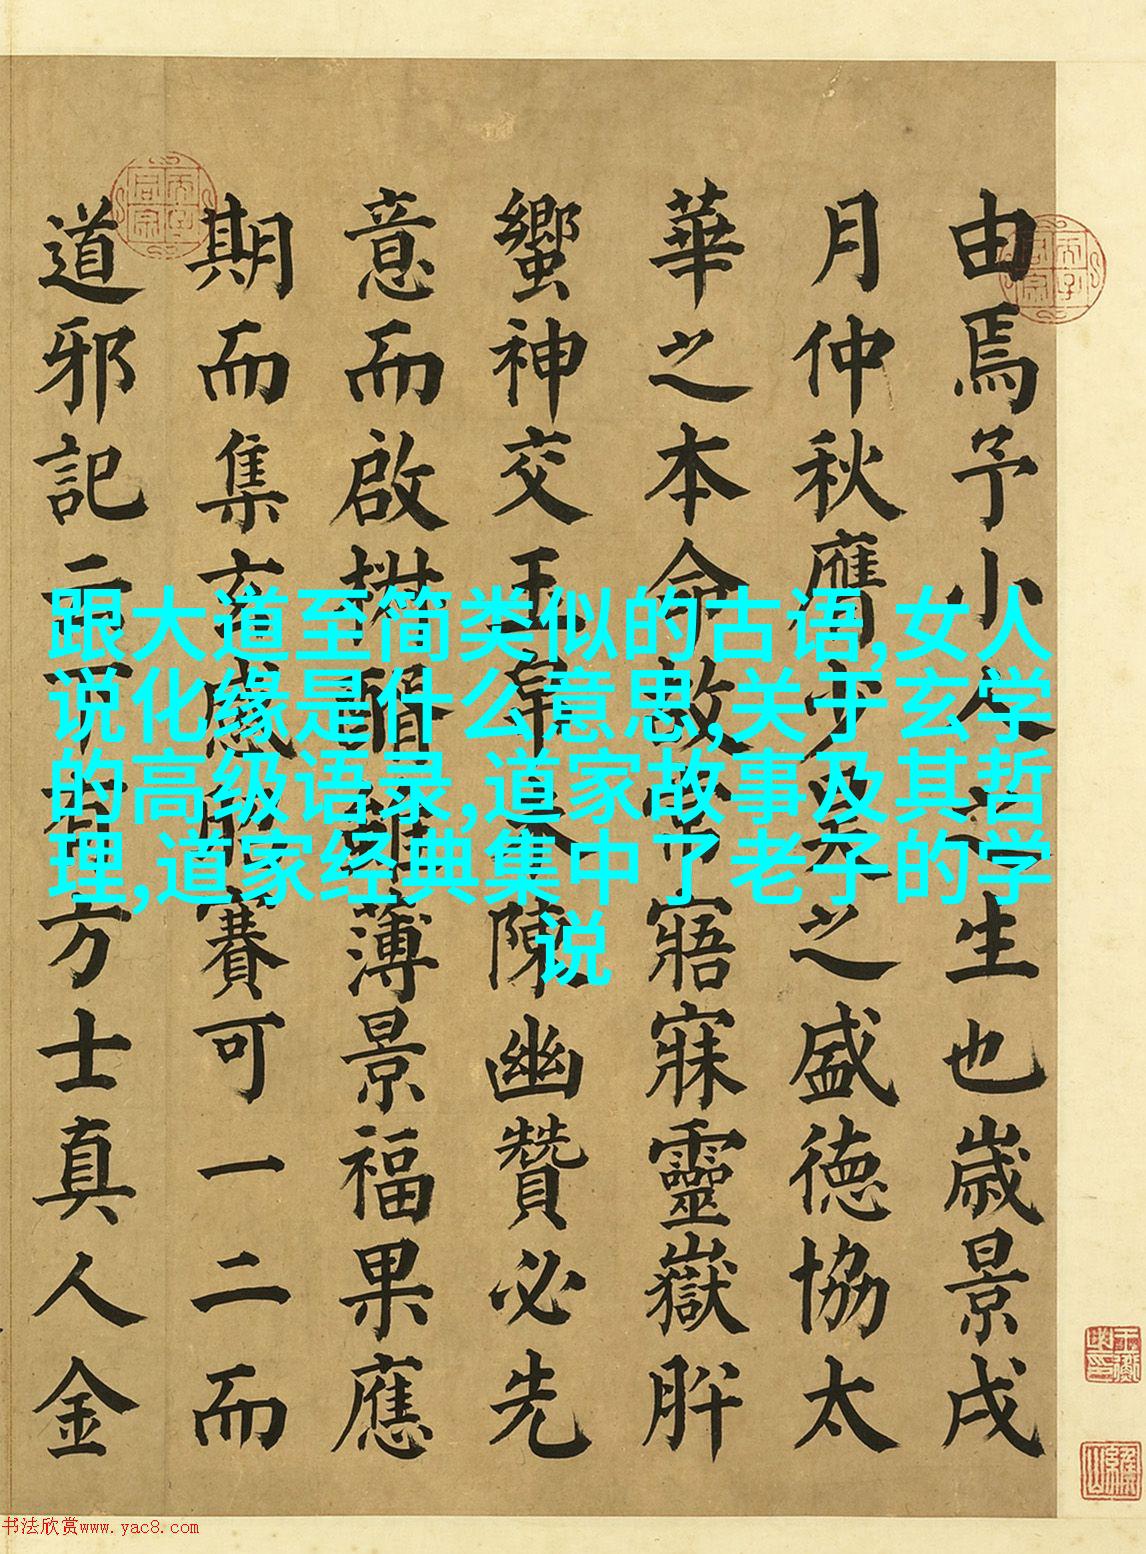 由焉予小人之生也歲景戌
月仲秋膺少昊之盛德協太
華之本命故常寤寐靈嶽肸
蠁神交玉陳幽贊必先
意而啟椒醑雖薄景福果應
期而集玄感昭賽可一二而
道邪記云方士真人金
跟大道至简类似的古语,女人
说化缘是什么意思,关于玄学
的高级语录,道家故事及其哲
理,道家经典集中了老子的学
说
书法欣赏www.yac8.com